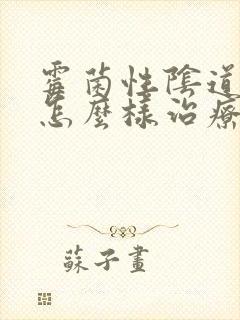 霉菌性陰道
怎麼樣治療
蘇子畫